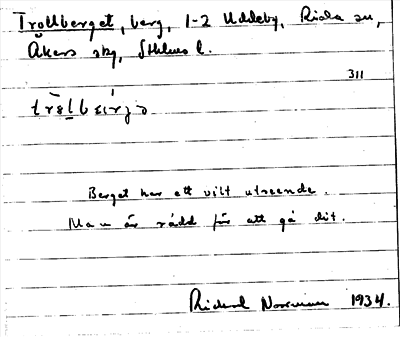 Trollberget, berg, 1-2 Uddeby, Riala sn,
Åkers skg, Sthlms l.
311
Berget har ett vilt utseende.
Man är rädd för att gå dit.
Rickard 1934.